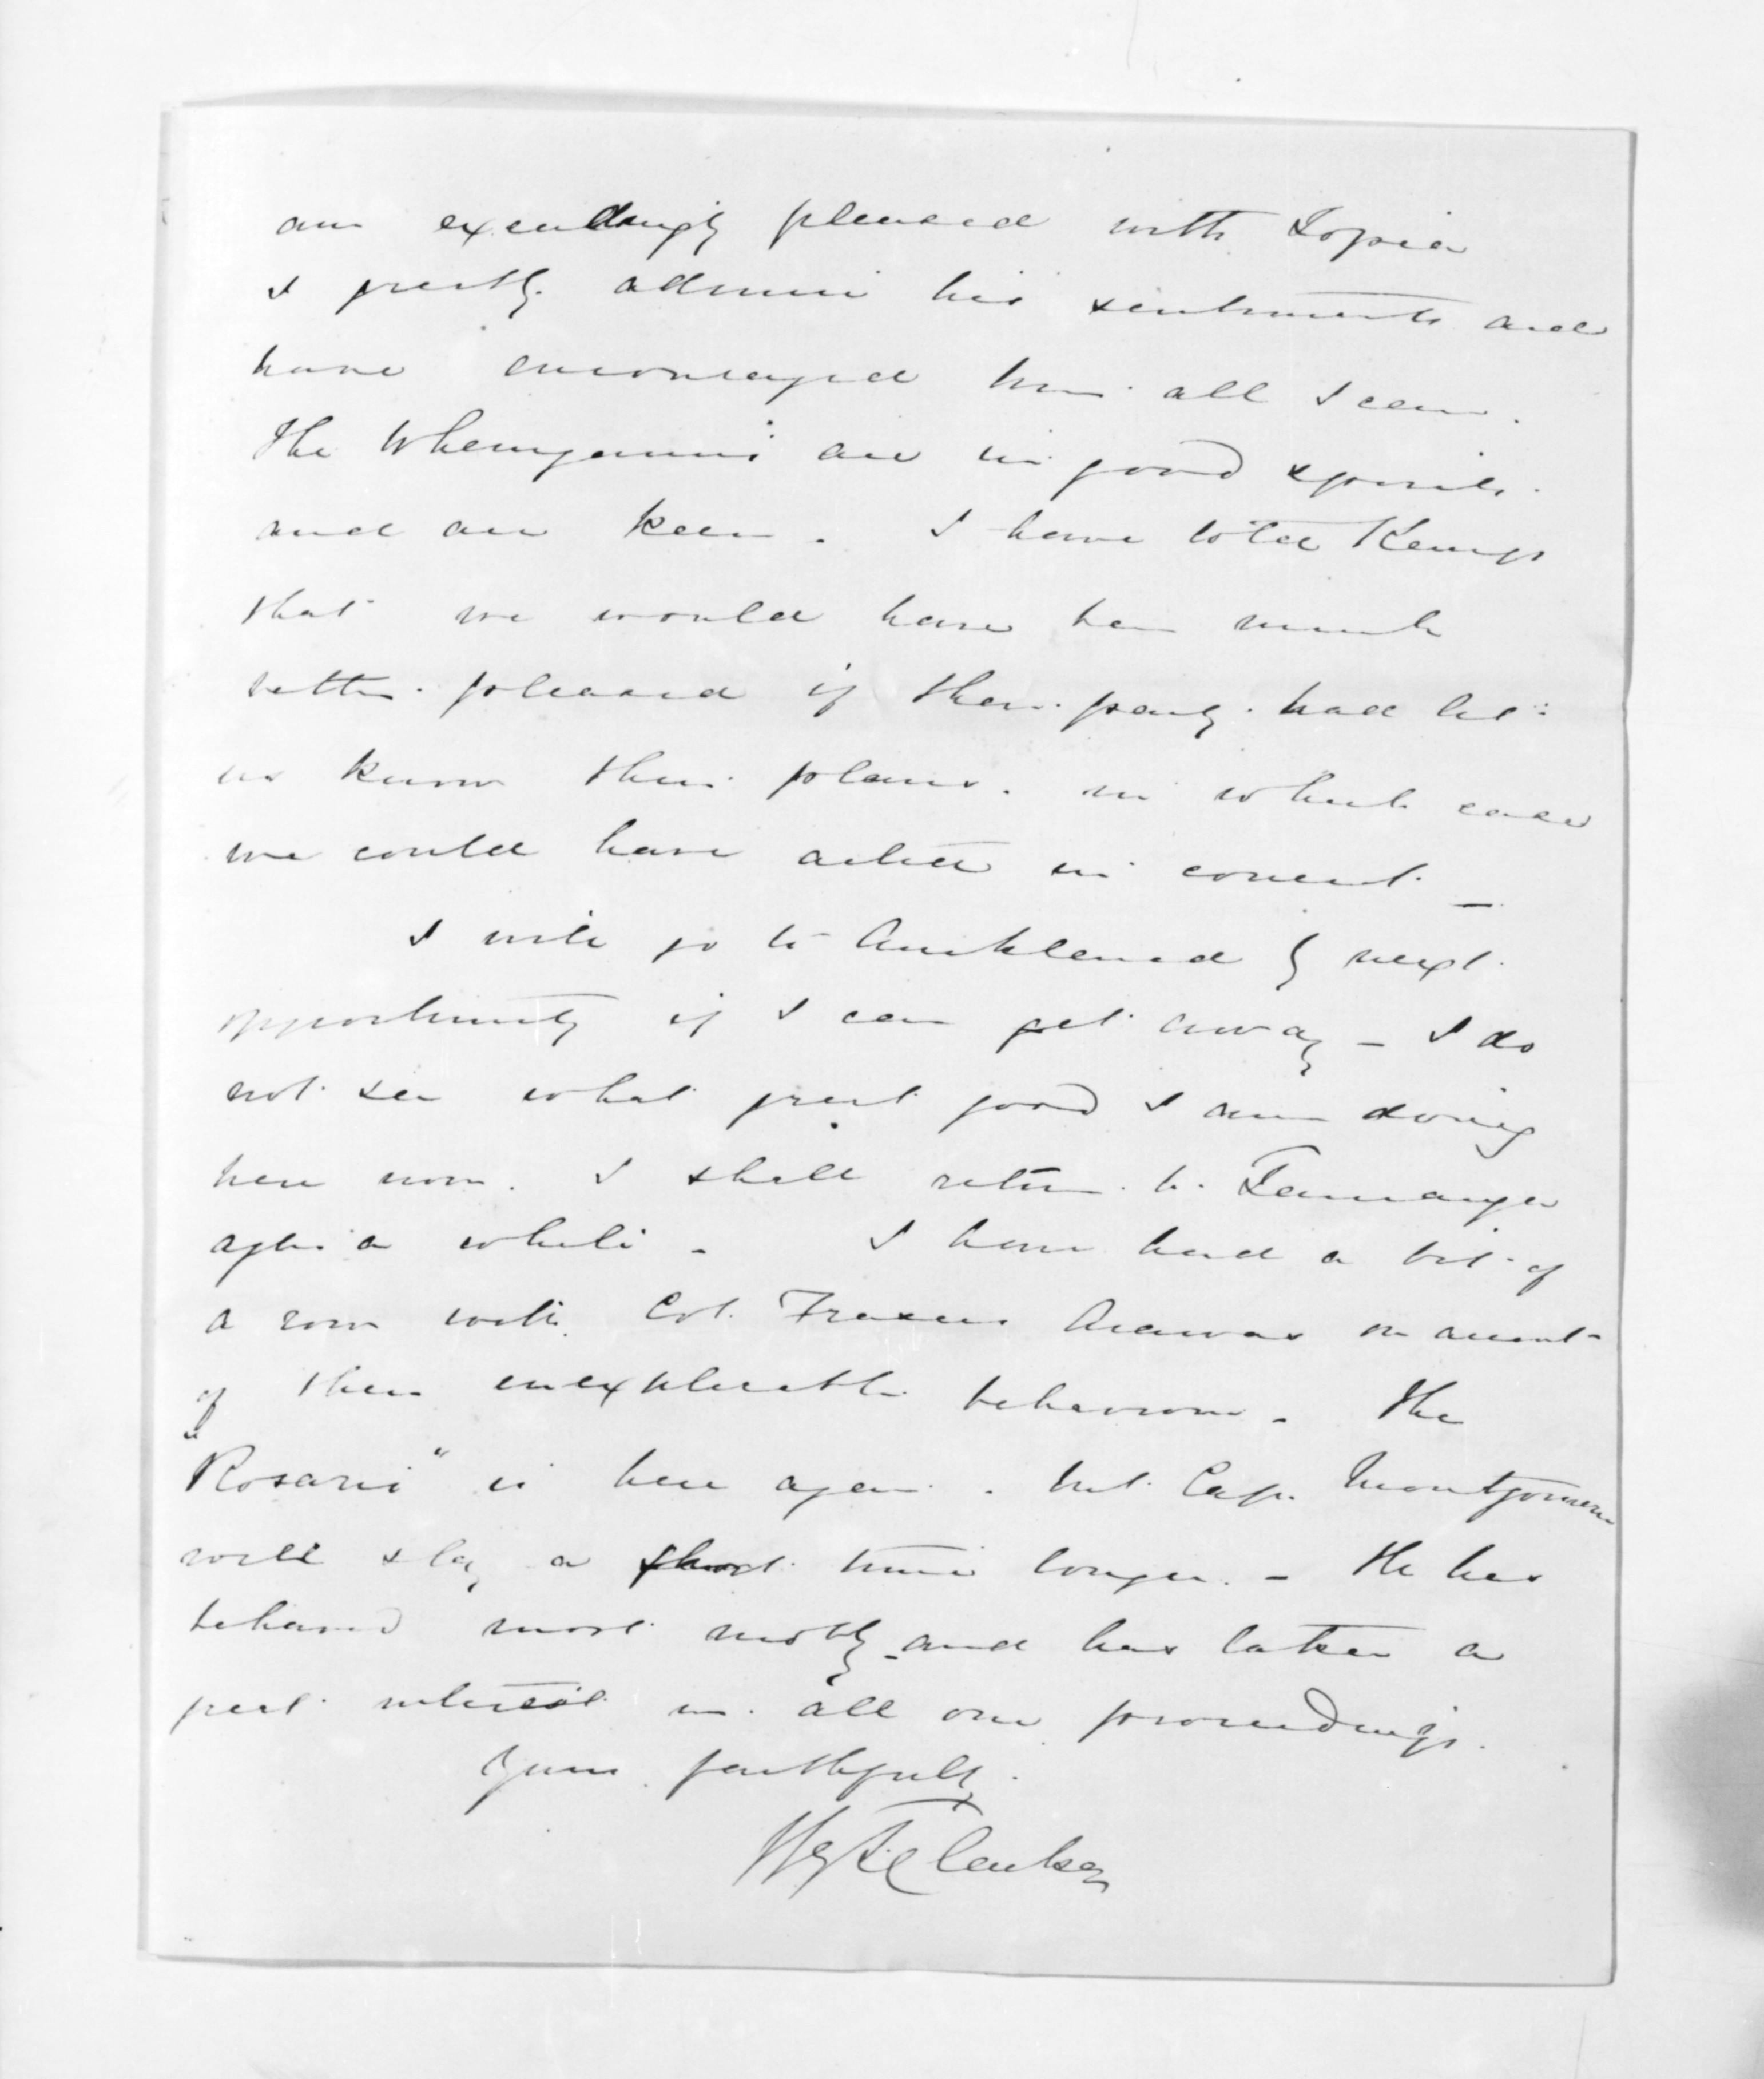 am exceedingly pleased with Topia
I greatly admire his sentiments and
have encouraged him all I can.
The Whanganuis are in good spirits.
and are keen. I have told Kemp
that we would have been much
better pleased if their party had let
us know their plans. in which case
we could have acted in concert _
I will go to Auckland by next
opportunity if I can get away _ I do
not see what great good I am doing
here now. I shall return to Tauranga
after a while _ I have had a bit of
a row with Col. Frasers Arawas on account
of their inexplicable behaviour _ The
"Rosario" is here again. but Capn Montgomerie
will stay a short time longer. _ He has
behaved most nobly and has taken a
great interest in all our proceedings.
Yours faithfully.
Hy T Clarke